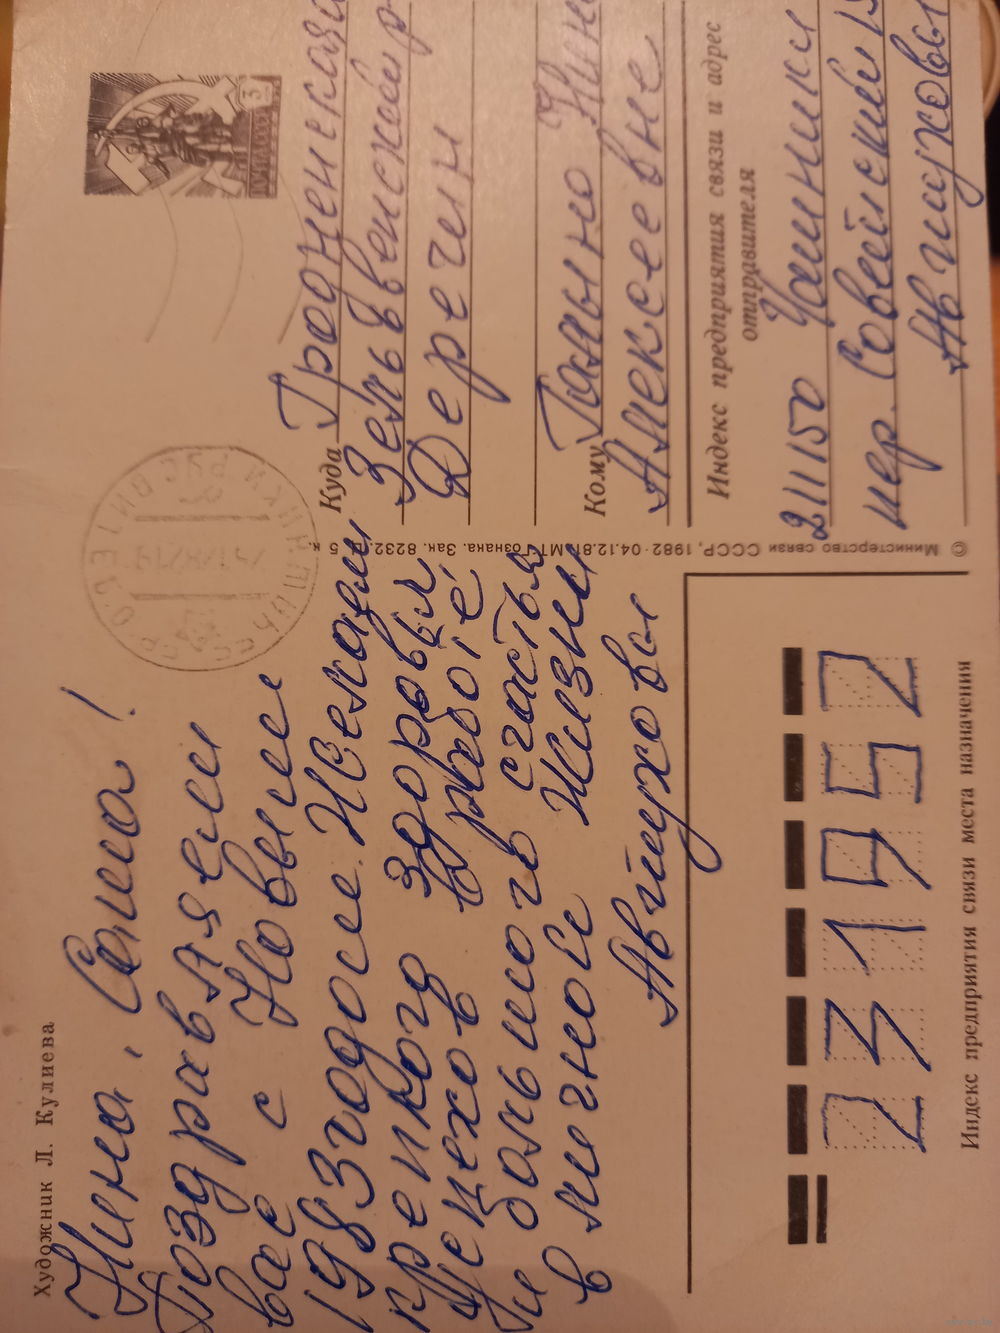 Художник Л. Кулиева
Нина, Саша!
Поздравляем
вас с Новым
1983 годом. Желаем
крепкого здоровья,
успехов в работе,
и большого счастья
в личной жизни
Автуховы
© Министерство связи СССР, 1982. 04.12.81. МТ Гознака. Зак. 8232. Ц. 5 к.
3
Куда Гродненская
Зельвенский р
Деречин
Кому
Алексеевне
Индекс предприятия связи и адрес
отправителя
211150 Чашники
пер. Советский 15
Автуховы
231052
Индекс предприятия связи места назначения